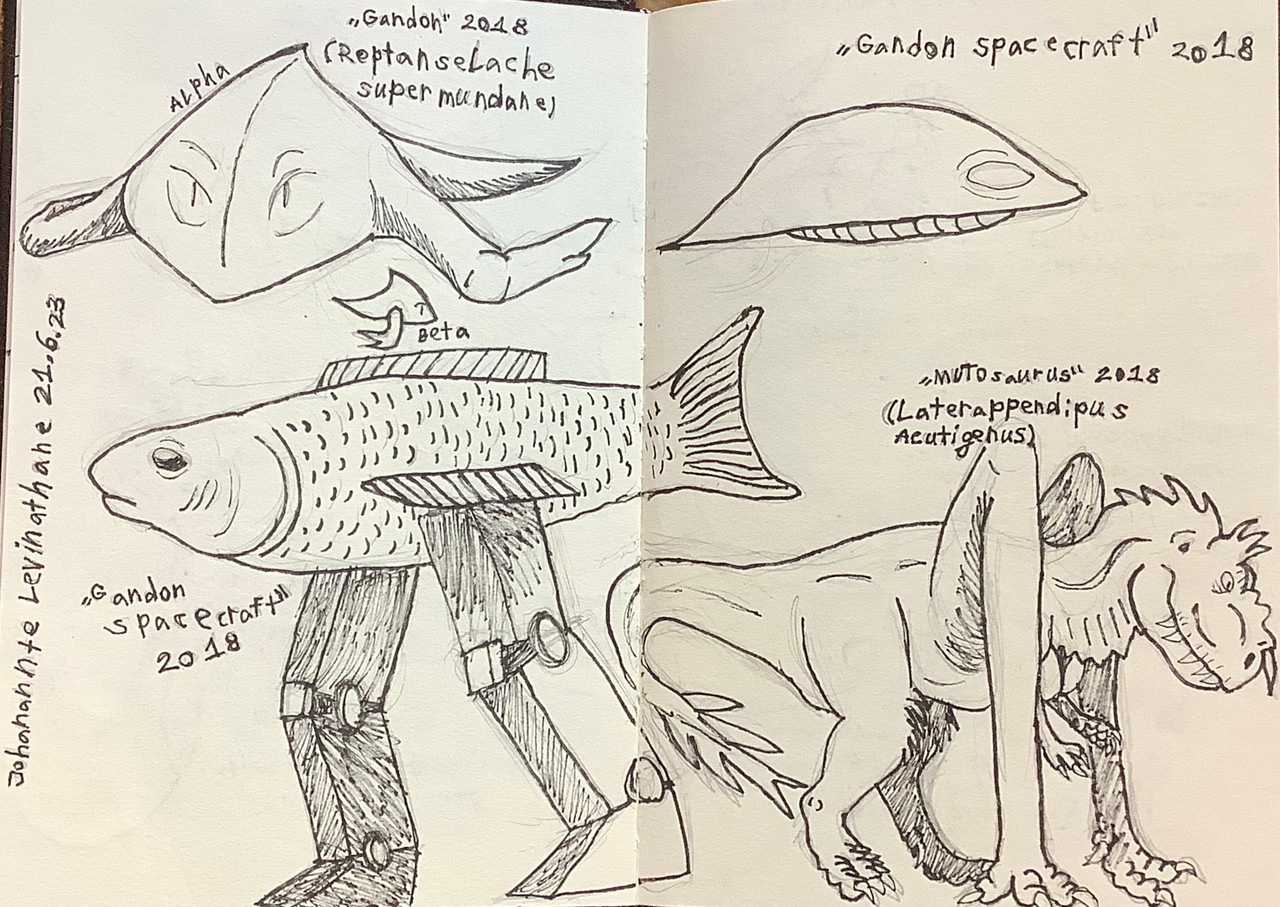 „Gandon" 2018
(Reptanselache
supermundane)
Alpha
Beta
„Gandon
spacecraft"
2018
Johanahnte Levinathane 21.6.23
„Gandon spacecraft" 2018
„MUTOsaurus" 2018
(Laterappendipus
Acutigenus)